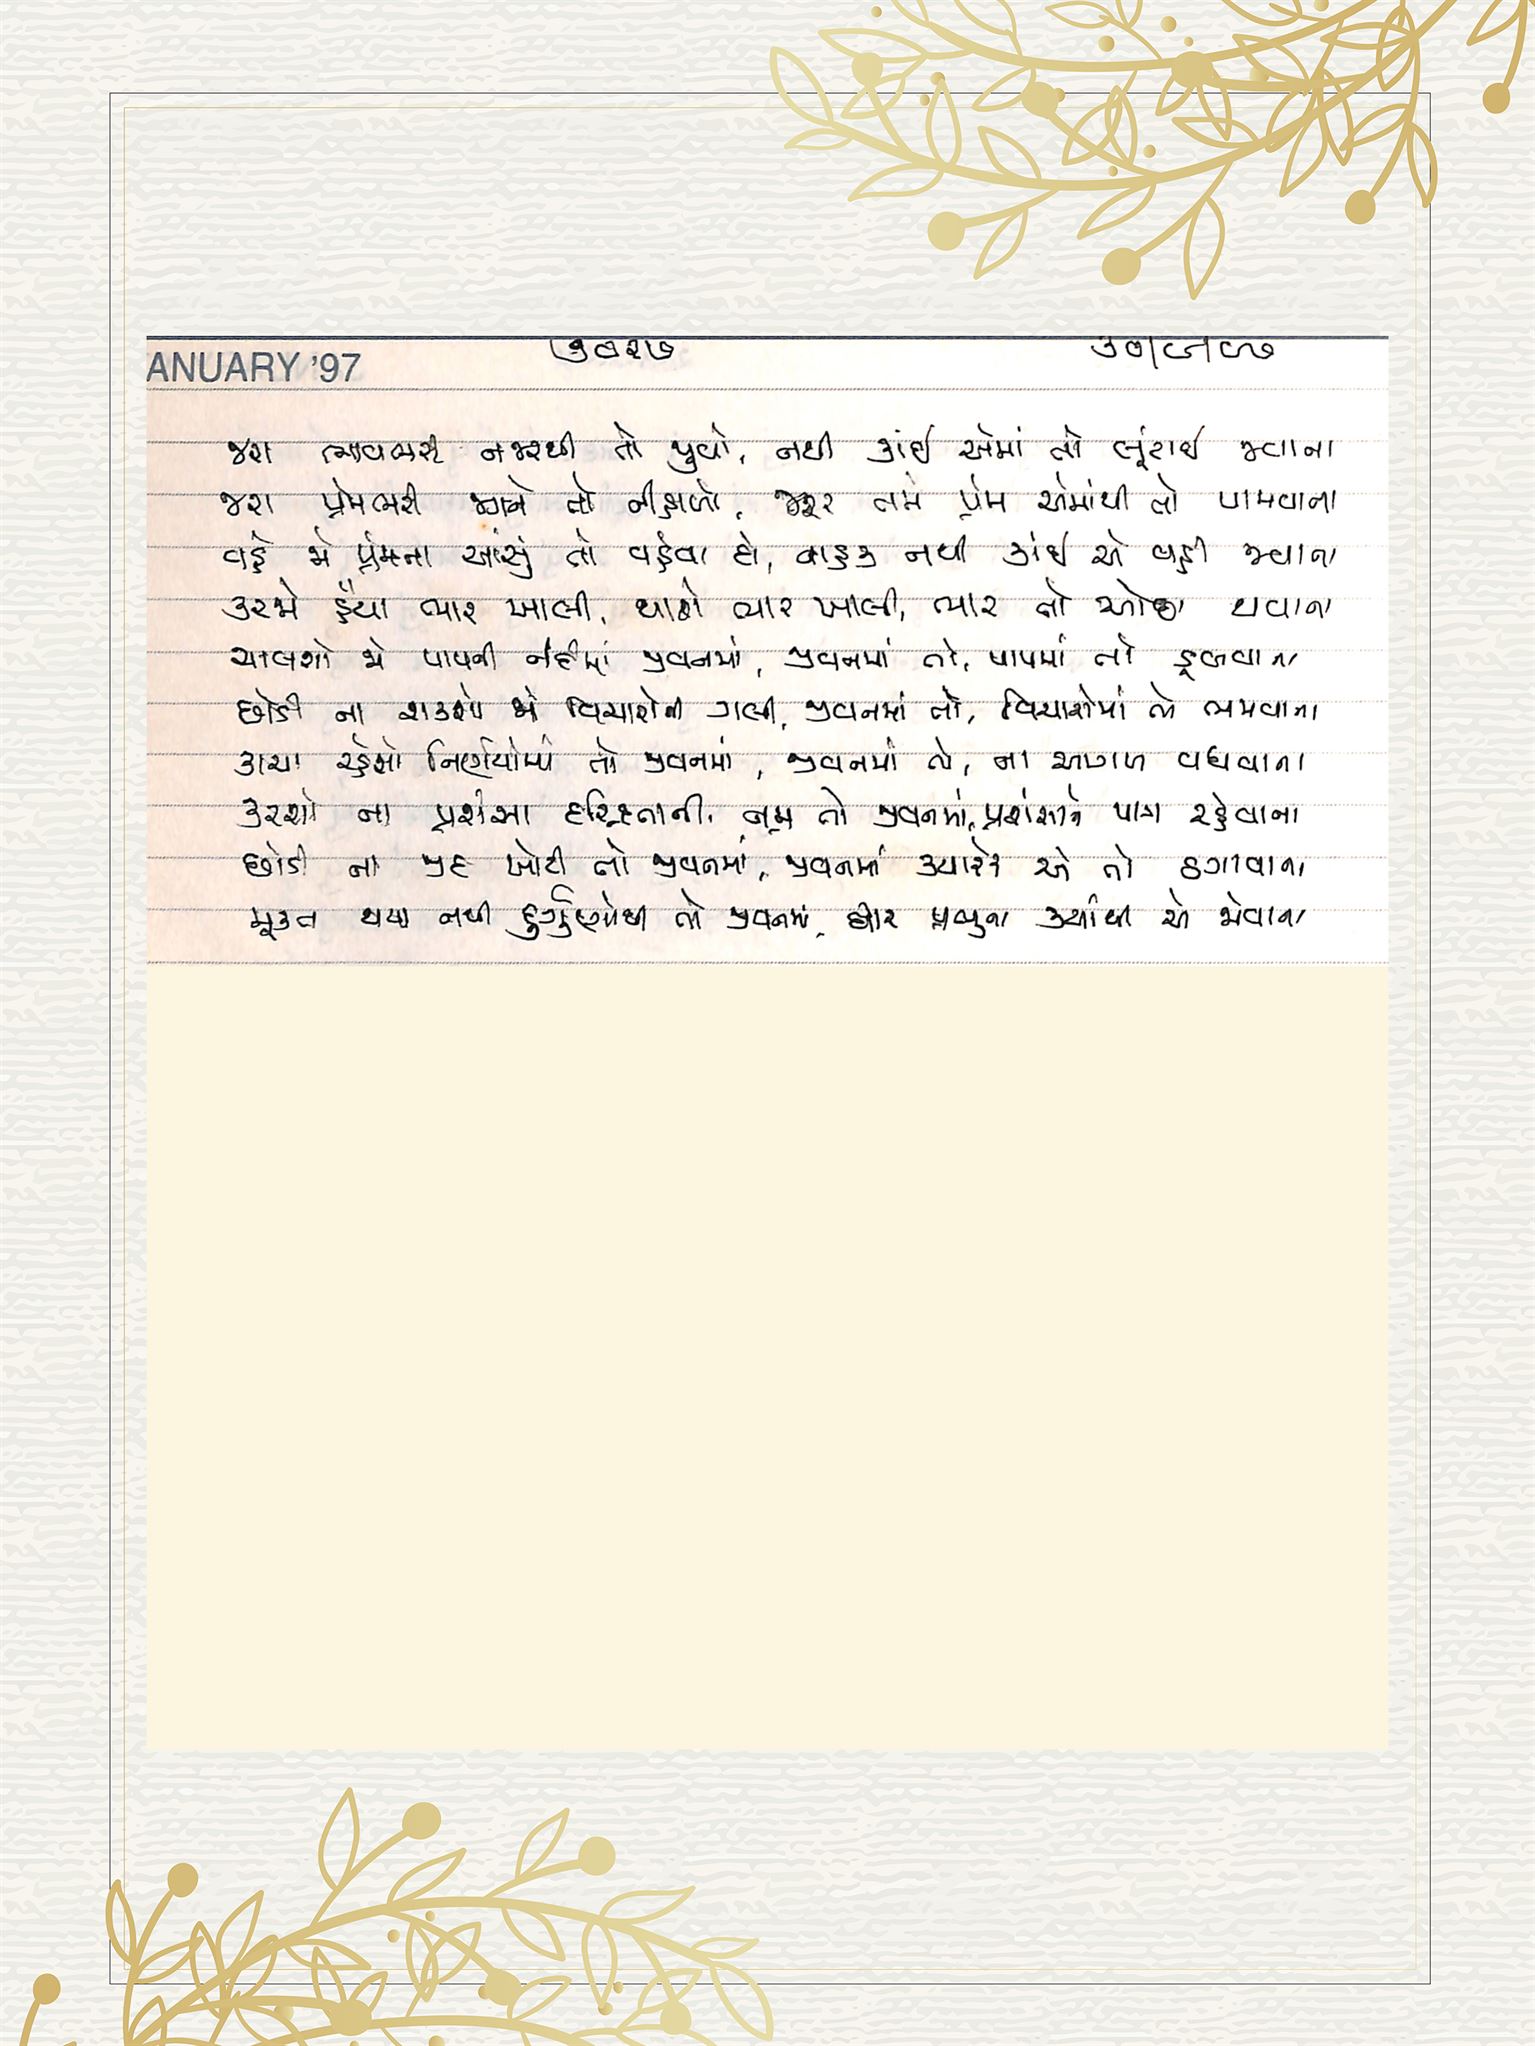 ANUARY '97
જરા ભાવભરી નજરથી તો જુવો, નથી કાંઈ એમાં તો લૂંટાઈ જવાના
જરા પ્રેમભરી જાને તો નીકળો, જરૂર તમે પ્રેમ એમાંથી તો પામવાના
વહે જો પ્રેમના આંસું તો વહેવા દો, નાહક નથી કાંઈ એ વહી જવાના
કરજો હૈયા ભાર ખાલી, થાશે ભાર ખાલી, ભાર તો ઓછા થવાના
ચાલશો જો પાપની નદીમાં જીવનમાં, જીવનમાં તો, પાપમાં તો ડૂબવાના
છોડી ના શકશો જો વિચારોની ગલી, જીવનમાં તો, વિચારોમાં તો ભમવાના
કાચા રહેશો નિર્ણયોમાં તો જીવનમાં, જીવનમાં તો, ના આગળ વધવાના
કરશો ના પ્રશંસા દરિદ્રતાની, નમ્ર તો જીવનમાં, પ્રશંસાને પાત્ર રહેવાના
છોડી ના જીદ ખોટી તો જીવનમાં, જીવનમાં ક્યારેક એ તો ઠગાવાના
મૂક્ત થયા નથી દુર્ગુણોથી તો જીવનમાં, દ્વાર પ્રભુના ક્યાંથી એ જોવાના